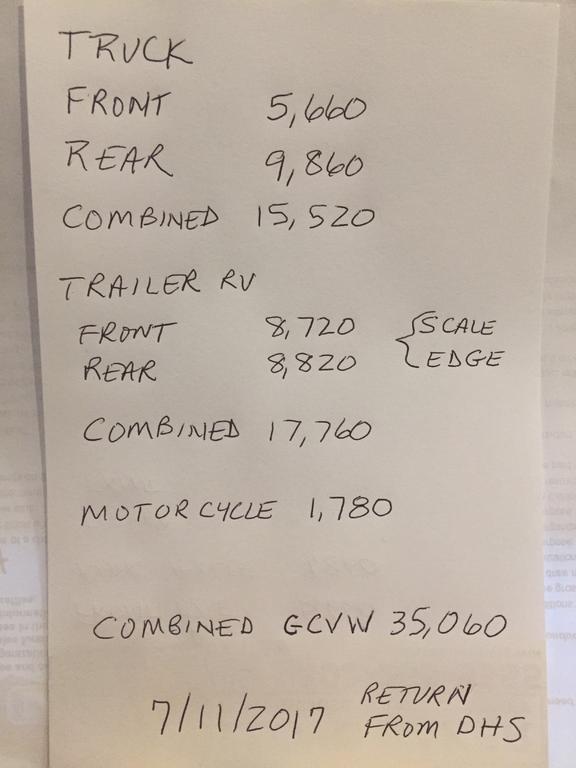 TRUCK
FRONT 5,660
REAR 9,860
COMBINED 15,520
TRAILER RV
FRONT 8,720 { SCALE
REAR 8,820 EDGE
COMBINED 17,760
MOTORCYCLE 1,780
COMBINED GCVW 35,060
7/11/2017 RETURN
FROM DHS